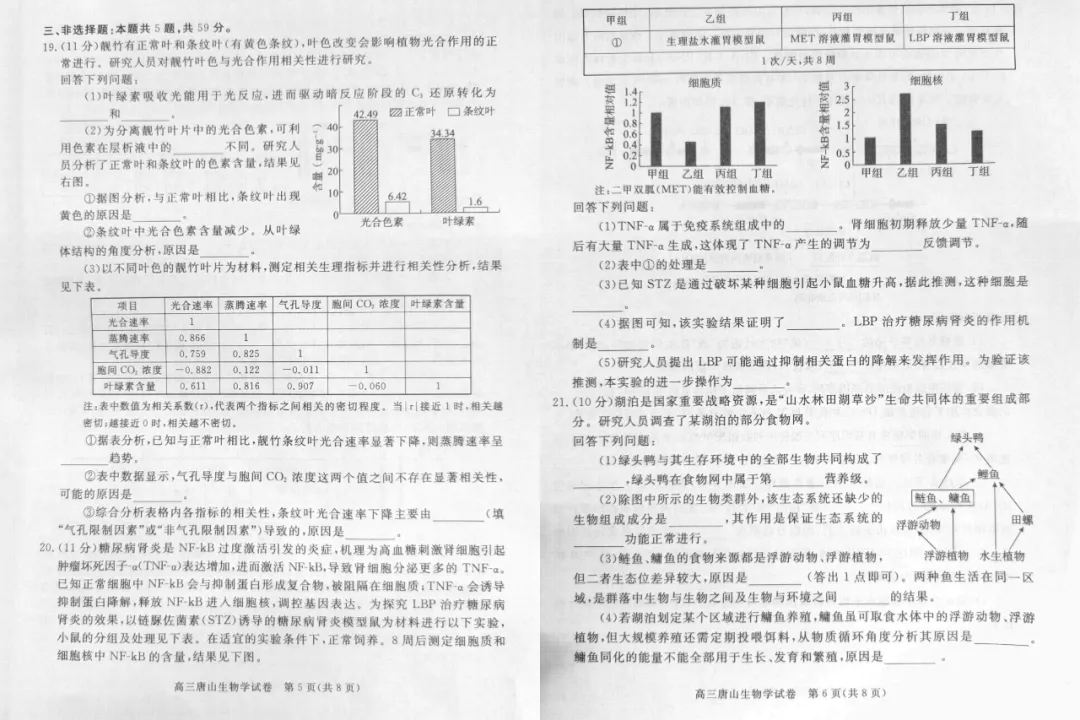 三、非选择题:本题共5题,共59分。
19.(11分)靓竹有正常叶和条纹叶(有黄色条纹),叶色改变会影响植物光合作用的正
常进行。研究人员对靓竹叶色与光合作用相关性进行研究。
回答下列问题:
(1)叶绿素吸收光能用于光反应,进而驱动暗反应阶段的 C₃ 还原转化为
______和______。
(2)为分离靓竹叶片中的光合色素,可利
用色素在层析液中的______不同。研究人
员分析了正常叶和条纹叶的色素含量,结果见
右图。
①据图分析,与正常叶相比,条纹叶出现
黄色的原因是______。
②条纹叶中光合色素含量减少。从叶绿
体结构的角度分析,原因是______。
正常叶 条纹叶
含量(mg·g⁻¹)
40
30
20
10
0
42.49
6.42
34.34
1.6
光合色素 叶绿素
(3)以不同叶色的靓竹叶片为材料,测定相关生理指标并进行相关性分析,结果
见下表。
项目 光合速率 蒸腾速率 气孔导度 胞间 CO₂ 浓度 叶绿素含量
光合速率 1
蒸腾速率 0.866 1
气孔导度 0.759 0.825 1
胞间 CO₂ 浓度 -0.882 0.122 -0.011 1
叶绿素含量 0.611 0.816 0.907 -0.060 1
注:表中数值为相关系数(r),代表两个指标之间相关的密切程度。当|r|接近1时,相关越
密切;越接近0时,相关越不密切。
①据表分析,已知与正常叶相比,靓竹条纹叶光合速率显著下降,则蒸腾速率呈
______趋势。
②表中数据显示,气孔导度与胞间 CO₂ 浓度这两个值之间不存在显著相关性,
可能的原因是______。
③综合分析表格内各指标的相关性,条纹叶光合速率下降主要由______(填
“气孔限制因素”或“非气孔限制因素”)导致的,原因是______。
20.(11分)糖尿病肾炎是 NF-kB 过度激活引发的炎症,机理为高血糖刺激肾细胞引起
肿瘤坏死因子-α(TNF-α)表达增加,进而激活 NF-kB,导致肾细胞分泌更多的 TNF-α。
已知正常细胞中 NF-kB 会与抑制蛋白形成复合物,被阻隔在细胞质;TNF-α 会诱导
抑制蛋白降解,释放 NF-kB 进入细胞核,调控基因表达。为探究 LBP 治疗糖尿病
肾炎的效果,以链脲佐菌素(STZ)诱导的糖尿病肾炎模型鼠为材料进行以下实验,
小鼠的分组及处理见下表。在适宜的实验条件下,正常饲养。8周后测定细胞质和
细胞核中 NF-kB 的含量,结果见下图。
高三唐山生物学试卷 第5页(共8页)
甲组 乙组 丙组 丁组
① 生理盐水灌胃模型鼠 MET 溶液灌胃模型鼠 LBP 溶液灌胃模型鼠
1次/天,共8周
细胞质
NF-kB含量相对值
1.4
1.2
1
0.8
0.6
0.4
0.2
0
甲组 乙组 丙组 丁组
细胞核
NF-kB含量相对值
3
2.5
2
1.5
1
0.5
0
甲组 乙组 丙组 丁组
注:二甲双胍(MET)能有效控制血糖。
回答下列问题:
(1)TNF-α 属于免疫系统组成中的______。肾细胞初期释放少量 TNF-α,随
后有大量 TNF-α 生成,这体现了 TNF-α 产生的调节为______反馈调节。
(2)表中①的处理是______。
(3)已知 STZ 是通过破坏某种细胞引起小鼠血糖升高,据此推测,这种细胞是
______。
(4)据图可知,该实验结果证明了______。LBP 治疗糖尿病肾炎的作用机
制是______。
(5)研究人员提出 LBP 可能通过抑制相关蛋白的降解来发挥作用。为验证该
推测,本实验的进一步操作为______。
21.(10分)湖泊是国家重要战略资源,是“山水林田湖草沙”生命共同体的重要组成部
分。研究人员调查了某湖泊的部分食物网。
回答下列问题:
(1)绿头鸭与其生存环境中的全部生物共同构成了
______,绿头鸭在食物网中属于第______营养级。
(2)除图中所示的生物类群外,该生态系统还缺少的
生物组成成分是______,其作用是保证生态系统的
______功能正常进行。
绿头鸭
鲤鱼
鲢鱼、鳙鱼
浮游动物
田螺
浮游植物 水生植物
(3)鲢鱼、鳙鱼的食物来源都是浮游动物、浮游植物,
但二者生态位差异较大,原因是______(答出1点即可)。两种鱼生活在同一区
域,是群落中生物与生物之间及生物与环境之间______的结果。
(4)若湖泊划定某个区域进行鳙鱼养殖,鳙鱼虽可取食水体中的浮游动物、浮游
植物,但大规模养殖还需定期投喂饵料,从物质循环角度分析其原因是______。
鳙鱼同化的能量不能全部用于生长、发育和繁殖,原因是______。
高三唐山生物学试卷 第6页(共8页)